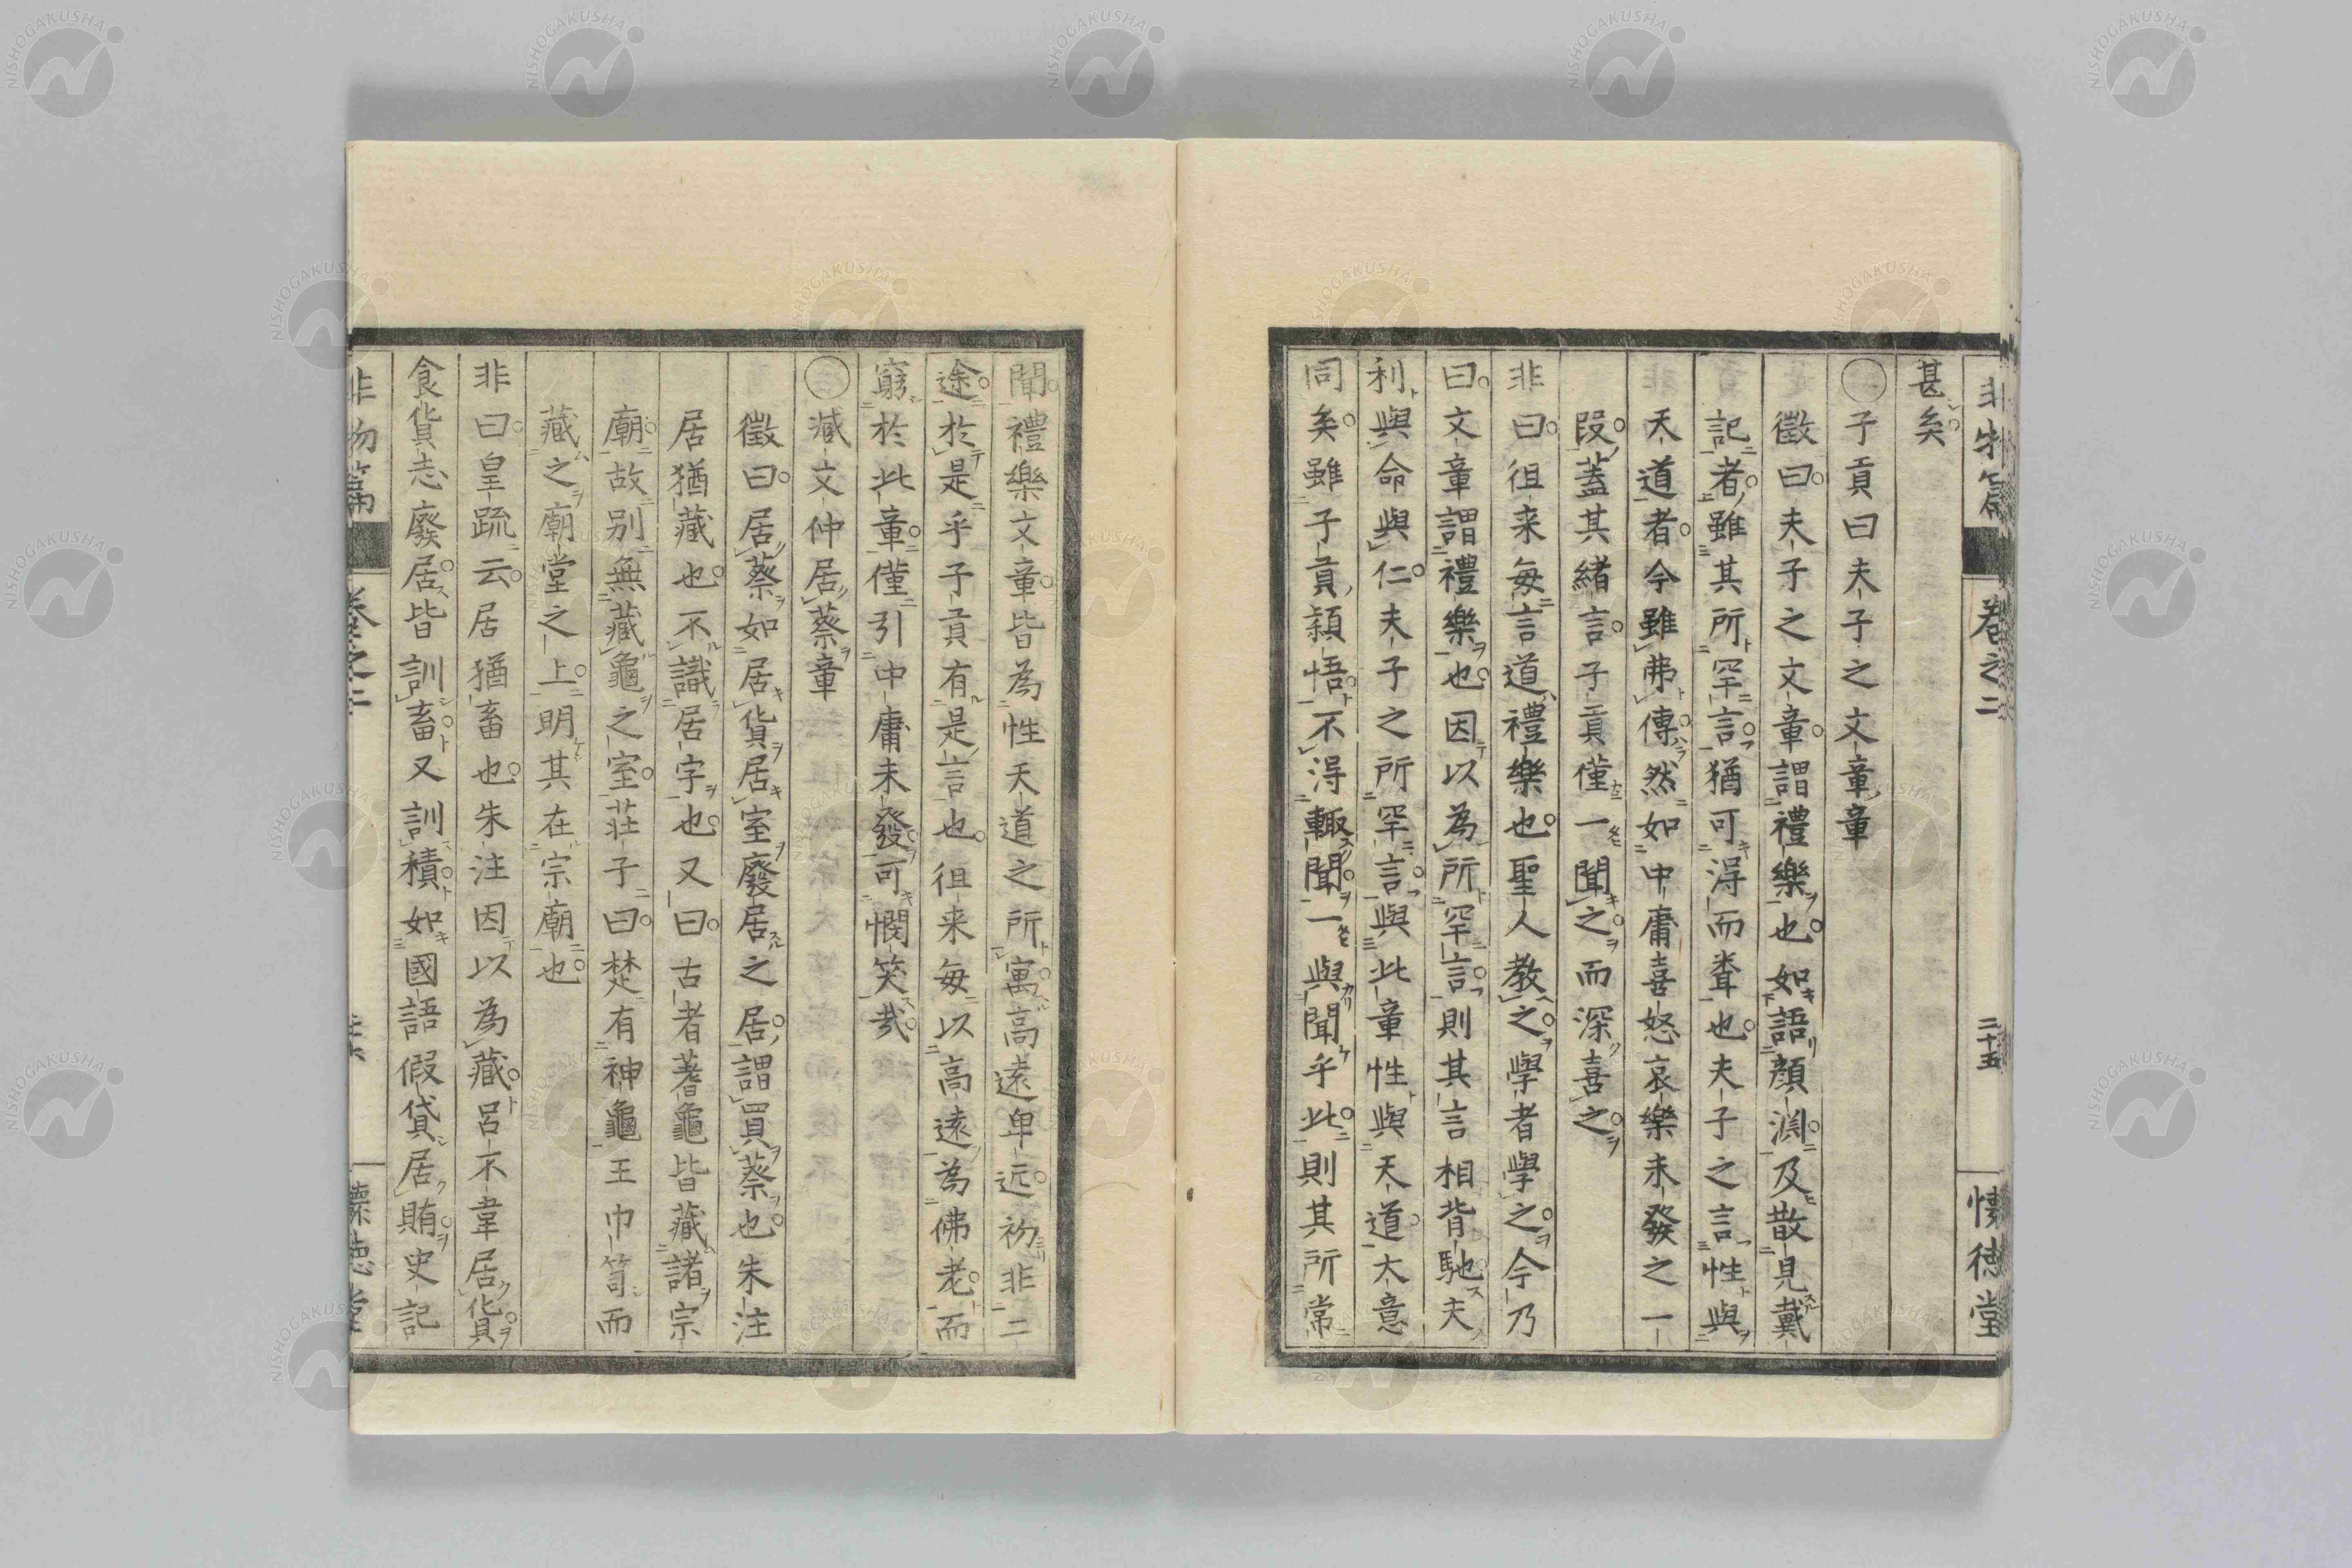 非物篇 卷之二 二十五 懐徳堂
甚矣
○子貢曰夫子之文章章
徴曰夫子之文章謂禮樂也如語顔淵及散見戴
記者雖其所罕言猶可淂而聋也夫子之言性與
天道者今雖弗傳然如中庸喜怒哀樂未發之一
段蓋其緒言子貢僅一聞之而深喜之
非曰徂来每言道禮樂也聖人教之學者學之今乃
曰文章謂禮樂也因以為所罕言則其言相背馳夫
利與命與仁夫子之所罕言與此章性與天道大意
同矣雖子貢穎悟不淂輙聞一與聞乎此則其所常
聞禮樂文章皆為性天道之所寓高遠卑近初非二
途於是乎子貢有是言也徂来每以高遠為佛老而
窮於此章僅引中庸未發可憫笑哉
○臧文仲居蔡章
徴曰居蔡如居貨居室廢居之居謂買蔡也朱注
居猶藏也不識居字也又曰古者蓍龜皆藏諸宗
廟故别無藏龜之室荘子曰楚有神龜王巾笥而
藏之廟堂之上明其在宗廟也
非曰皇疏云居猶畜也朱注因以為藏呂不韋居貨
食貨志廢居皆訓畜又訓積如國語假貸居賄史記
非物篇 卷之二 懐徳堂